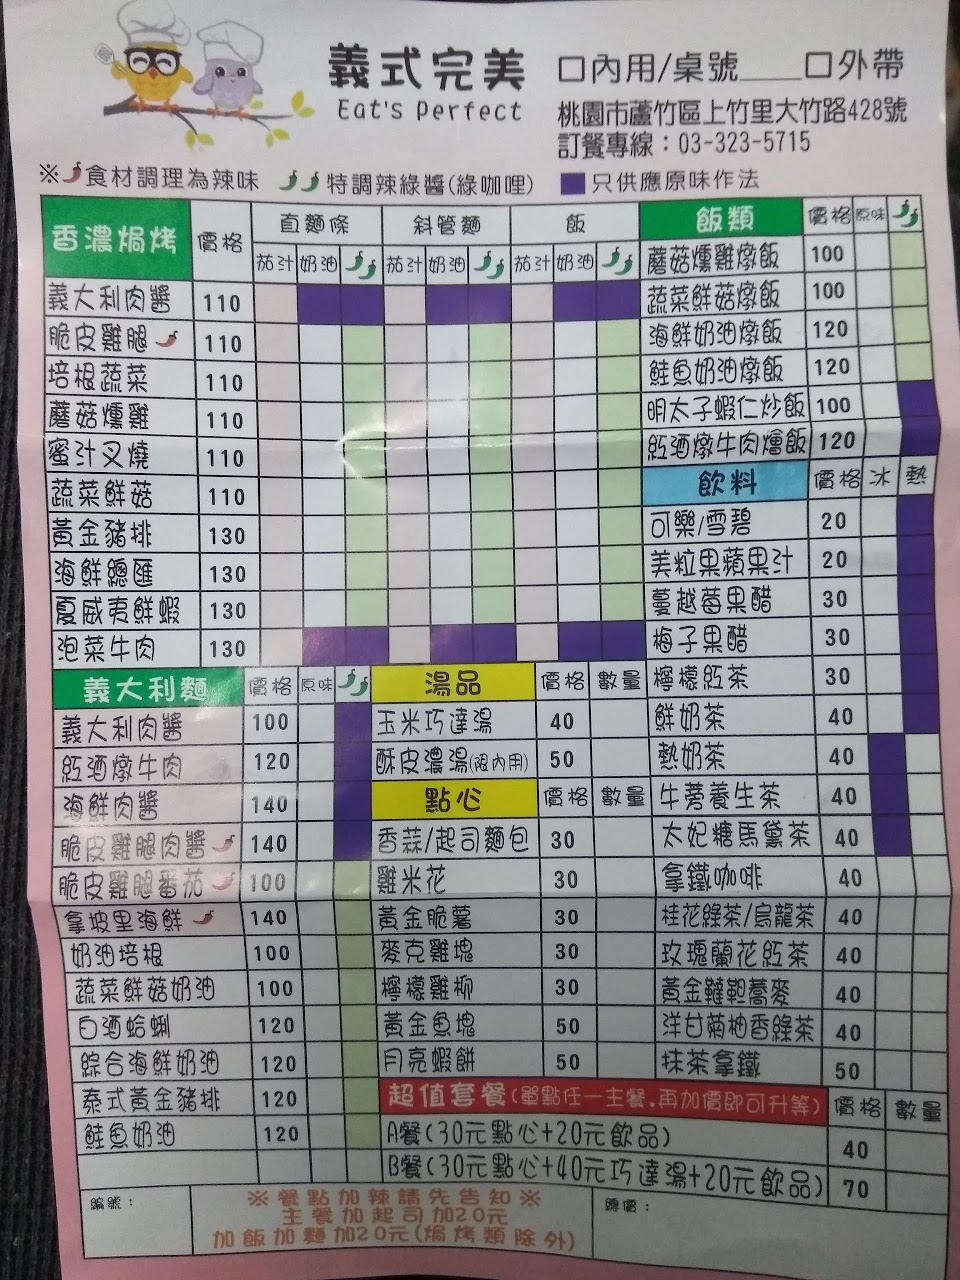 義式完美
Eat's Perfect
口內用/桌號____口外帶
桃園市蘆竹區上竹里大竹路428號
訂餐專線：03-323-5715
※食材調理為辣味 特調辣綠醬(綠咖哩) 只供應原味作法
香濃焗烤 價格 直麵條 斜管麵 飯
茄汁 奶油 茄汁 奶油 茄汁 奶油
義大利肉醬 110
脆皮雞腿 110
培根蔬菜 110
蘑菇燻雞 110
蜜汁叉燒 110
蔬菜鮮菇 110
黃金豬排 130
海鮮總匯 130
夏威夷鮮蝦 130
泡菜牛肉 130
飯類 價格 原味
蘑菇燻雞燉飯 100
蔬菜鮮菇燉飯 100
海鮮奶油燉飯 120
鮭魚奶油燉飯 120
明太子蝦仁炒飯 100
紅酒燉牛肉燴飯 120
飲料 價格 冰 熱
可樂/雪碧 20
美粒果蘋果汁 20
蔓越莓果醋 30
梅子果醋 30
檸檬紅茶 30
鮮奶茶 40
熱奶茶 40
牛蒡養生茶 40
太妃糖馬黛茶 40
拿鐵咖啡 40
桂花綠茶/烏龍茶 40
玫瑰蘭花紅茶 40
黃金韃靼蕎麥 40
洋甘菊柚香綠茶 40
抹茶拿鐵 50
義大利麵 價格 原味
義大利肉醬 100
紅酒燉牛肉 120
海鮮肉醬 140
脆皮雞腿肉醬 140
脆皮雞腿番茄 100
拿坡里海鮮 140
奶油培根 100
蔬菜鮮菇奶油 100
白酒蛤蜊 120
綜合海鮮奶油 120
泰式黃金豬排 120
鮭魚奶油 120
湯品 價格 數量
玉米巧達湯 40
酥皮濃湯(限內用) 50
點心 價格 數量
香蒜/起司麵包 30
雞米花 30
黃金脆薯 30
麥克雞塊 30
檸檬雞柳 30
黃金魚塊 50
月亮蝦餅 50
超值套餐(單點任一主餐.再加價即可升等) 價格 數量
A餐(30元點心+20元飲品) 40
B餐(30元點心+40元巧達湯+20元飲品) 70
編號：
※餐點加辣請先告知※
主餐加起司加20元
加飯加麵加20元(焗烤類除外)
總價：